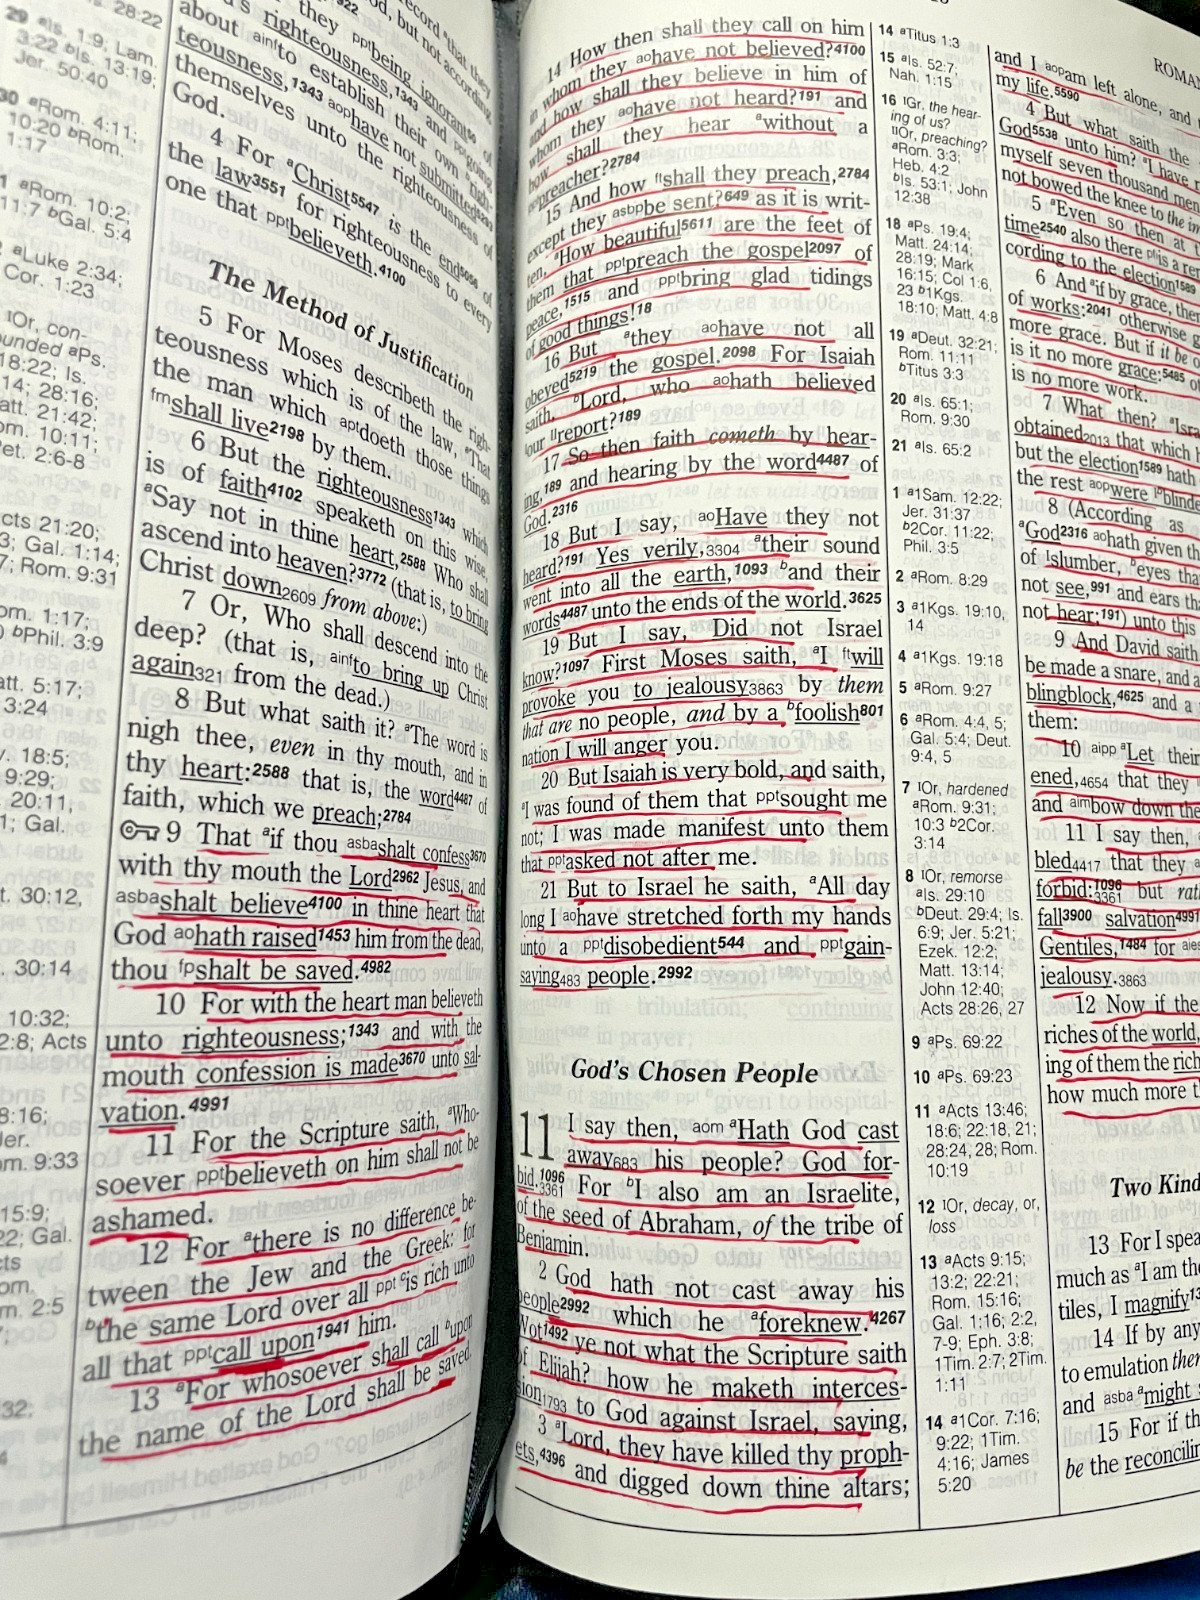 28:22
29 ᵃIs. 1:9; Lam.
3:22 ᵇIs. 13:19;
Jer. 50:40
30 ᵃRom. 4:11;
10:20 ᵇRom.
1:17
1 ᵃRom. 10:2;
11:7 ᵇGal. 5:4
ᵃLuke 2:34;
Cor. 1:23
¹Or, con-
ounded ᵃPs.
18:22; Is.
14; 28:16;
att. 21:42;
om. 10:11;
Pet. 2:6-8
cts 21:20;
3; Gal. 1:14;
7; Rom. 9:31
om. 1:17;
ᵇPhil. 3:9
att. 5:17;
3:24
v. 18:5;
9:29;
20:11,
1; Gal.
t. 30:12,
. 30:14
10:32;
2:8; Acts
8:16;
Jer.
om. 9:33
15:9;
22; Gal.
cts
om.
m. 2:5
32;
record ᵃthat they
God, but not according
they ᵖᵖᵗbeing ignorantᵒ of
righteousness,¹³⁴³ and ᵖᵖgoing
about ᵃⁱⁿᶠto establish their own ᵇrigh-
teousness,¹³⁴³ ᵃᵒᵖhave not submitted⁵²⁹³
themselves unto the righteousness of
God.
4 For ᵃChrist⁵⁵⁴⁷ is the end⁵⁰⁵⁶ of
the law³⁵⁵¹ for righteousness to every
one that ᵖᵖᵗbelieveth.⁴¹⁰⁰
The Method of Justification
5 For Moses describeth the righ-
teousness which is of the law, ᵃThat
the man which ᵃᵖᵗdoeth those things
ᶠᵐshall live²¹⁹⁸ by them.
6 But the righteousness¹³⁴³ which
is of faith⁴¹⁰² speaketh on this wise,
ᵃSay not in thine heart,²⁵⁸⁸ Who shall
ascend into heaven?³⁷⁷² (that is, to bring
Christ down₂₆₀₉ from above:)
7 Or, Who shall descend into the
deep? (that is, ᵃⁱⁿᶠto bring up Christ
again₃₂₁ from the dead.)
8 But what saith it? ᵃThe word is
nigh thee, even in thy mouth, and in
thy heart:²⁵⁸⁸ that is, the word⁴⁴⁸⁷ of
faith, which we preach;²⁷⁸⁴
9 That ᵃif thou ᵃˢᵇᵃshalt confess³⁶⁷⁰
with thy mouth the Lord²⁹⁶² Jesus, and
ᵃˢᵇᵃshalt believe⁴¹⁰⁰ in thine heart that
God ᵃᵒhath raised¹⁴⁵³ him from the dead,
thou ᶠᵖshalt be saved.⁴⁹⁸²
10 For with the heart man believeth
unto righteousness;¹³⁴³ and with the
mouth confession is made³⁶⁷⁰ unto sal-
vation.⁴⁹⁹¹
11 For the Scripture saith, ᵃWho-
soever ᵖᵖᵗbelieveth on him shall not be
ashamed.
12 For ᵃthere is no difference be-
tween the Jew and the Greek: for
ᵇthe same Lord over all ᵖᵖᵗ ᶜis rich unto
all that ᵖᵖᵗcall upon¹⁹⁴¹ him.
13 ᵃFor whosoever shall call ᵇupon
the name of the Lord shall be saved.
14 How then shall they call on him
in whom they ᵃᵒhave not believed?⁴¹⁰⁰
and how shall they believe in him of
whom they ᵃᵒhave not heard?¹⁹¹ and
how shall they hear ᵃwithout a
ᵖᵖpreacher?²⁷⁸⁴
15 And how ᶠᵗshall they preach,²⁷⁸⁴
except they ᵃˢᵇᵖbe sent?⁶⁴⁹ as it is writ-
ten, ᵃHow beautiful⁵⁶¹¹ are the feet of
them that ᵖᵖᵗpreach the gospel²⁰⁹⁷ of
peace,¹⁵¹⁵ and ᵖᵖᵗbring glad tidings
of good things!¹⁸
16 But ᵃthey ᵃᵒhave not all
obeyed⁵²¹⁹ the gospel.²⁰⁹⁸ For Isaiah
saith, ᵇLord, who ᵃᵒhath believed
our ᴵᴵreport?¹⁸⁹
17 So then faith cometh by hear-
ing,¹⁸⁹ and hearing by the word⁴⁴⁸⁷ of
God.²³¹⁶
18 But I say, ᵃᵒHave they not
heard?¹⁹¹ Yes verily,₃₃₀₄ ᵃtheir sound
went into all the earth,¹⁰⁹³ ᵇand their
words⁴⁴⁸⁷ unto the ends of the world.³⁶²⁵
19 But I say, Did not Israel
know?¹⁰⁹⁷ First Moses saith, ᵃI ᶠᵗwill
provoke you to jealousy₃₈₆₃ by them
that are no people, and by a ᵇfoolish⁸⁰¹
nation I will anger you.
20 But Isaiah is very bold, and saith,
ᵃI was found of them that ᵖᵖᵗsought me
not; I was made manifest unto them
that ᵖᵖᵗasked not after me.
21 But to Israel he saith, ᵃAll day
long I ᵃᵒhave stretched forth my hands
unto a ᵖᵖᵗdisobedient⁵⁴⁴ and ᵖᵖᵗgain-
saying₄₈₃ people.²⁹⁹²
God's Chosen People
11 I say then, ᵃᵒᵐ ᵃHath God cast
away₆₈₃ his people? God for-
bid.¹⁰⁹⁶₃₃₆₁ For ᵇI also am an Israelite,
of the seed of Abraham, of the tribe of
Benjamin.
2 God hath not cast away his
people²⁹⁹² which he ᵃforeknew.⁴²⁶⁷
Wot¹⁴⁹² ye not what the Scripture saith
of Elijah? how he maketh interces-
sion₁₇₉₃ to God against Israel, saying,
3 ᵃLord, they have killed thy proph-
ets,⁴³⁹⁶ and digged down thine altars;
14 ᵃTitus 1:3
15 ᵃIs. 52:7;
Nah. 1:15
16 ᴵGr. the hear-
ing of us?
ᴵᴵOr, preaching?
ᵃRom. 3:3;
Heb. 4:2
ᵇIs. 53:1; John
12:38
18 ᵃPs. 19:4;
Matt. 24:14;
28:19; Mark
16:15; Col 1:6,
23 ᵇ1Kgs.
18:10; Matt. 4:8
19 ᵃDeut. 32:21;
Rom. 11:11
ᵇTitus 3:3
20 ᵃIs. 65:1;
Rom. 9:30
21 ᵃIs. 65:2
1 ᵃ1Sam. 12:22;
Jer. 31:37
ᵇ2Cor. 11:22;
Phil. 3:5
2 ᵃRom. 8:29
3 ᵃ1Kgs. 19:10,
14
4 ᵃ1Kgs. 19:18
5 ᵃRom. 9:27
6 ᵃRom. 4:4, 5;
Gal. 5:4; Deut.
9:4, 5
7 ᴵOr, hardened
ᵃRom. 9:31;
10:3 ᵇ2Cor.
3:14
8 ᴵOr, remorse
ᵃIs. 29:10
ᵇDeut. 29:4; Is.
6:9; Jer. 5:21;
Ezek. 12:2;
Matt. 13:14;
John 12:40;
Acts 28:26, 27
9 ᵃPs. 69:22
10 ᵃPs. 69:23
11 ᵃActs 13:46;
18:6; 22:18, 21;
28:24, 28; Rom.
10:19
12 ᴵOr, decay, or,
loss
13 ᵃActs 9:15;
13:2; 22:21;
Rom. 15:16;
Gal. 1:16; 2:2,
7-9; Eph. 3:8;
1Tim. 2:7; 2Tim.
1:11
14 ᵃ1Cor. 7:16;
9:22; 1Tim.
4:16; James
5:20
ROMAN
and I ᵃᵒᵖam left alone, and
my life.⁵⁵⁹⁰
4 But what saith the
God⁵⁵³⁸ unto him? ᵃI have
myself seven thousand men
not bowed the knee to the im
5 ᵃEven so then at
time²⁵⁴⁰ also there ᵖᶠis a rem
cording to the election¹⁵⁸⁹
6 And ᵃif by grace, then
of works:²⁰⁴¹ otherwise g
more grace. But if it be o
is it no more grace:⁵⁴⁸⁵ ot
is no more work.
7 What then? ᵃIsra
obtained₂₀₁₃ that which h
but the election¹⁵⁸⁹ hath
the rest ᵃᵒᵖwere ᴵᵇblinde
8 (According as
ᵃGod²³¹⁶ ᵃᵒhath given th
of ᴵslumber, ᵇeyes tha
not see,⁹⁹¹ and ears tha
not hear;¹⁹¹) unto this
9 And David saith
be made a snare, and a
blingblock,⁴⁶²⁵ and a
them:
10 ᵃⁱᵖᵖ ᵃLet their
ened,₄₆₅₄ that they
and ᵃⁱᵐbow down the
11 I say then,
bled₄₄₁₇ that they
forbid:¹⁰⁹⁶₃₃₆₁ but rath
fall³⁹⁰⁰ salvation⁴⁹⁹¹
Gentiles,¹⁴⁸⁴ for ᵃⁱᵉˢ
jealousy.₃₈₆₃
12 Now if the
riches of the world,
ing of them the rich
how much more t
Two Kind
13 For I spea
much as ᵃI am the
tiles, I magnify¹³
14 If by any
to emulation them
and ᵃˢᵇᵃ ᵃmight s
15 For if th
be the reconcilin